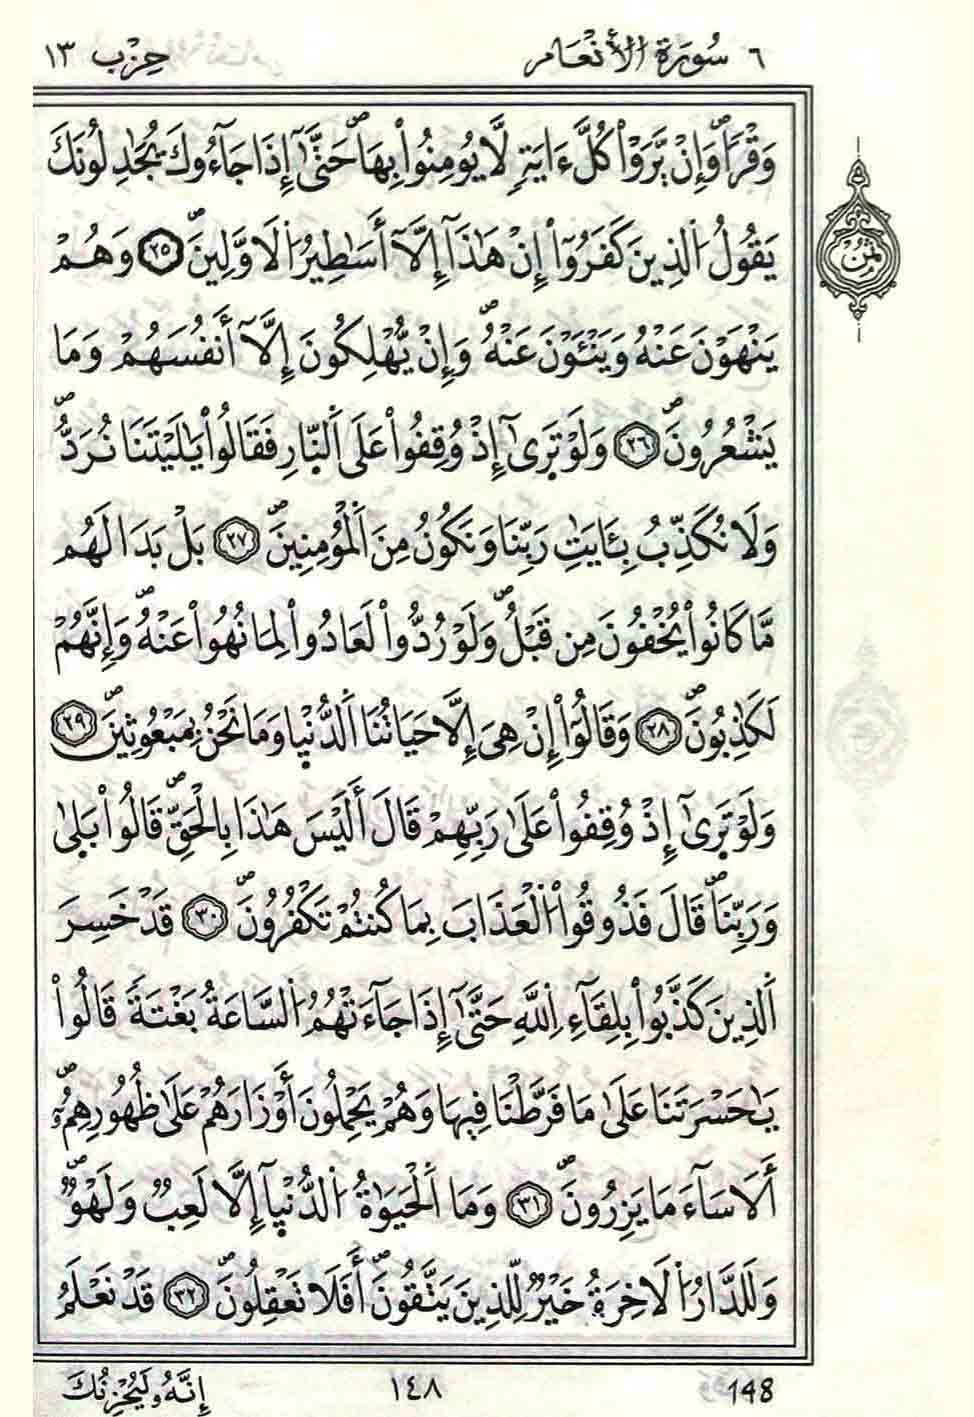 ٦ سُورَةُ الأَنْعَام حِزْب ١٣
وَقْراًۖ وَإِنْ يَّرَوْاْ كُلَّ ءَايَةٖ لَّا يُومِنُواْ بِهَاۖ حَتَّىٰٓ إِذَا جَآءُوكَ يُجَٰدِلُونَكَ
يَقُولُ اُ۬لذِينَ كَفَرُوٓاْ إِنْ هَٰذَآ إِلَّآ أَسَٰطِيرُ اُ۬لَاوَّلِينَۖ ٢٥ وَهُمْ
يَنْهَوْنَ عَنْهُ وَيَنْـَٔوْنَ عَنْهُۖ وَإِنْ يُّهْلِكُونَ إِلَّآ أَنفُسَهُمْ وَمَا
يَشْعُرُونَۖ ٢٦ وَلَوْ تَر۪ىٰٓ إِذْ وُقِفُواْ عَلَى اَ۬لنّ۪ارِ فَقَالُواْ يَٰلَيْتَنَا نُرَدُّۖ
وَلَا نُكَذِّبُ بِـَٔايَٰتِ رَبِّنَا وَنَكُونُ مِنَ اَ۬لْمُومِنِينَۖ ٢٧ بَلْ بَدَا لَهُم
مَّا كَانُواْ يُخْفُونَ مِن قَبْلُۖ وَلَوْ رُدُّواْ لَعَادُواْ لِمَا نُهُواْ عَنْهُۖ وَإِنَّهُمْ
لَكَٰذِبُونَۖ ٢٨ وَقَالُوٓاْ إِنْ هِيَ إِلَّا حَيَاتُنَا اَ۬لدُّنْي۪ا وَمَا نَحْنُ بِمَبْعُوثِينَۖ ٢٩
وَلَوْ تَر۪ىٰٓ إِذْ وُقِفُواْ عَلَىٰ رَبِّهِمْ قَالَ أَلَيْسَ هَٰذَا بِالْحَقِّۖ قَالُواْ بَل۪ىٰ
وَرَبِّنَاۖ قَالَ فَذُوقُواْ اُ۬لْعَذَابَ بِمَا كُنتُمْ تَكْفُرُونَۖ ٣٠ قَدْ خَسِرَ
اَ۬لذِينَ كَذَّبُواْ بِلِقَآءِ اِ۬للَّهِ حَتَّىٰٓ إِذَا جَآءَتْهُمُ اُ۬لسَّاعَةُ بَغْتَةٗ قَالُواْ
يَٰحَسْرَتَنَا عَلَىٰ مَا فَرَّطْنَا فِيهَا وَهُمْ يَحْمِلُونَ أَوْزَارَهُمْ عَلَىٰ ظُهُورِهِمُۥٓۖ
أَلَا سَآءَ مَا يَزِرُونَۖ ٣١ وَمَا اَ۬لْحَيَوٰةُ اُ۬لدُّنْي۪آ إِلَّا لَعِبٞ وَلَهْوٞۖ
وَلَلدَّارُ اُ۬لَاخِرَةُ خَيْرٞ لِّلذِينَ يَتَّقُونَۖ أَفَلَا تَعْقِلُونَۖ ٣٢ قَدْ نَعْلَمُ
ثُمُن
إِنَّهُۥ لَيُحْزِنُكَ ١٤٨ 148